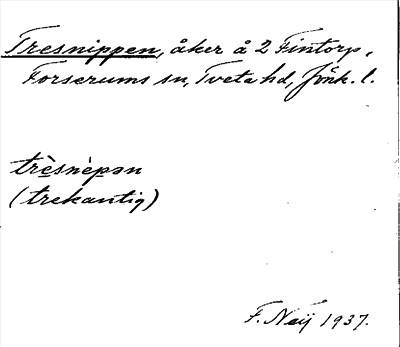 Tresnippen, åker å 2 Fintorp,
Forserums sn, Tveta hd, Jönk. l.
trèsnèpən
(trekantig)
F. Neij 1937.